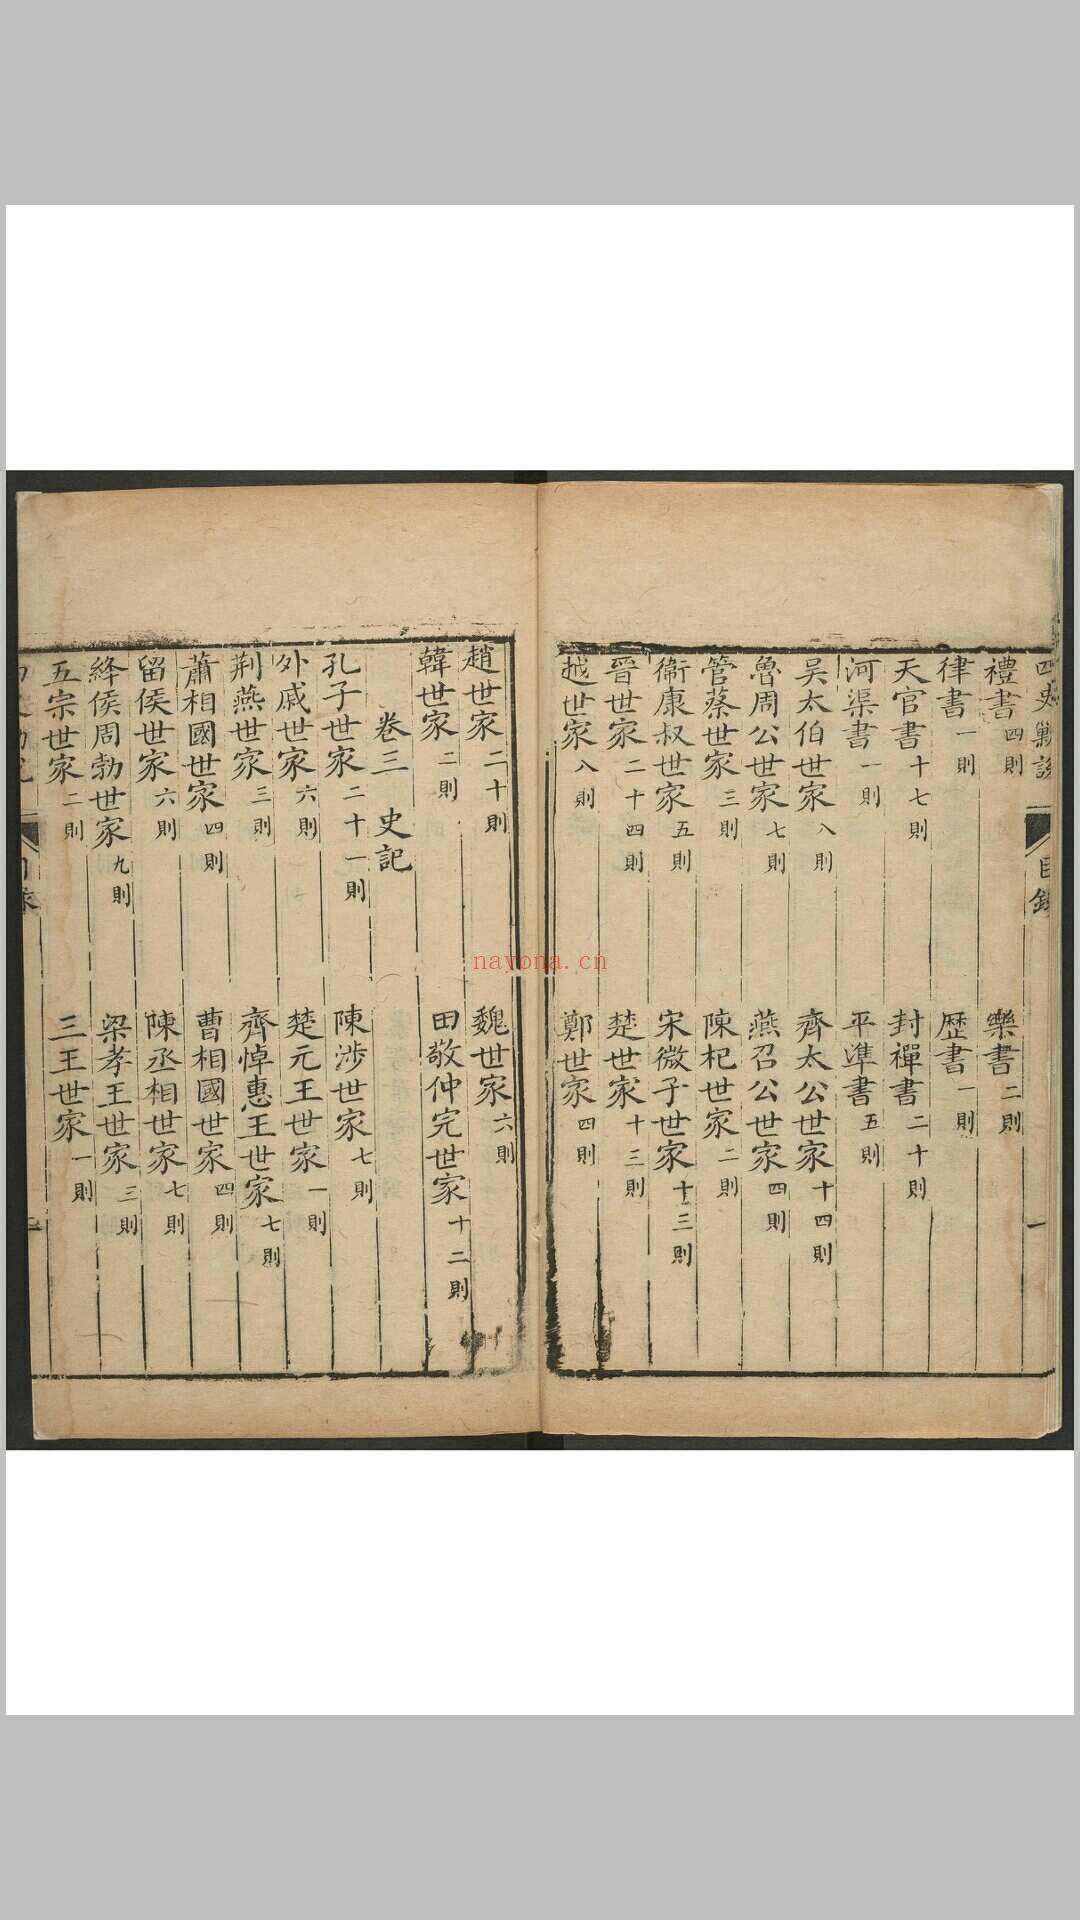 四史勦說 目錄 一
禮書四則 樂書二則
律書一則 歷書一則
天官書十七則 封禪書二十則
河渠書一則 平準書五則
吳太伯世家八則 齊太公世家十四則
魯周公世家七則 燕召公世家四則
管蔡世家三則 陳杞世家二則
衞康叔世家五則 宋微子世家十三則
晉世家二十四則 楚世家十三則
越世家八則 鄭世家四則
趙世家二十則 魏世家六則
韓世家二則 田敬仲完世家十二則
卷三 史記
孔子世家二十一則 陳涉世家七則
外戚世家六則 楚元王世家一則
荆燕世家三則 齊悼惠王世家七則
蕭相國世家四則 曹相國世家四則
留侯世家六則 陳丞相世家七則
絳侯周勃世家九則 梁孝王世家三則
五宗世家二則 三王世家一則
nayona.cn